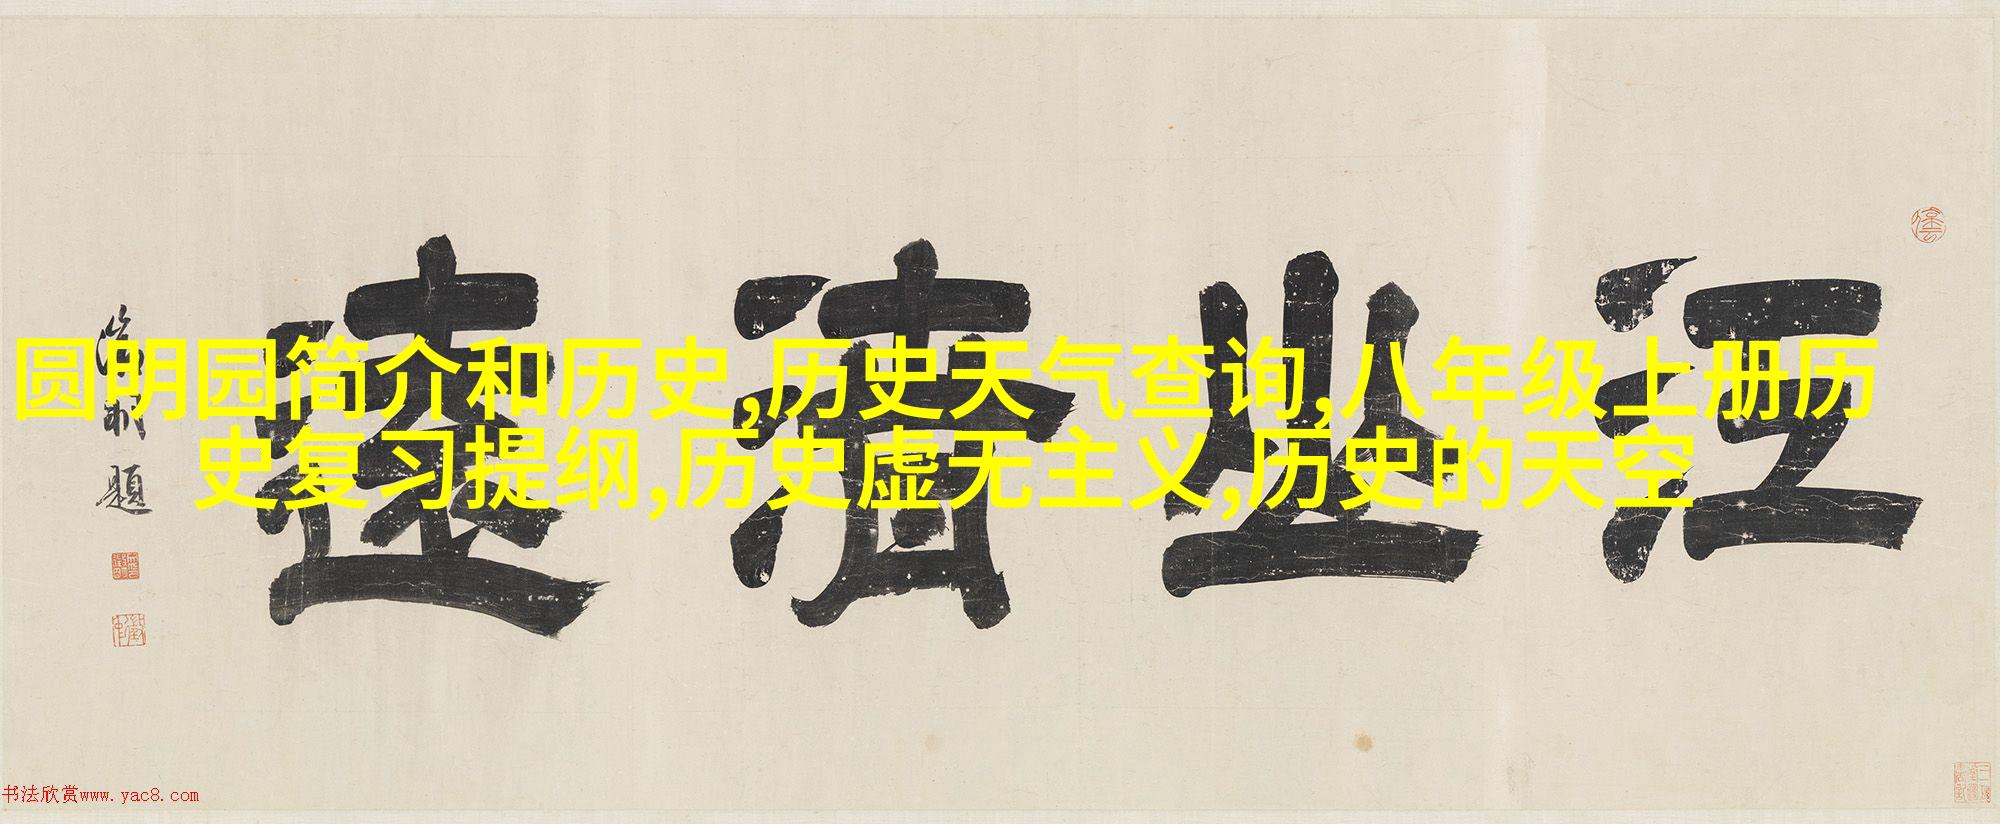 圆明园简介和历史,历史天气查询,八年级上册历
史复习提纲,历史虚无主义,历史的天空
江山清遠
題
书法欣赏www.yac8.com